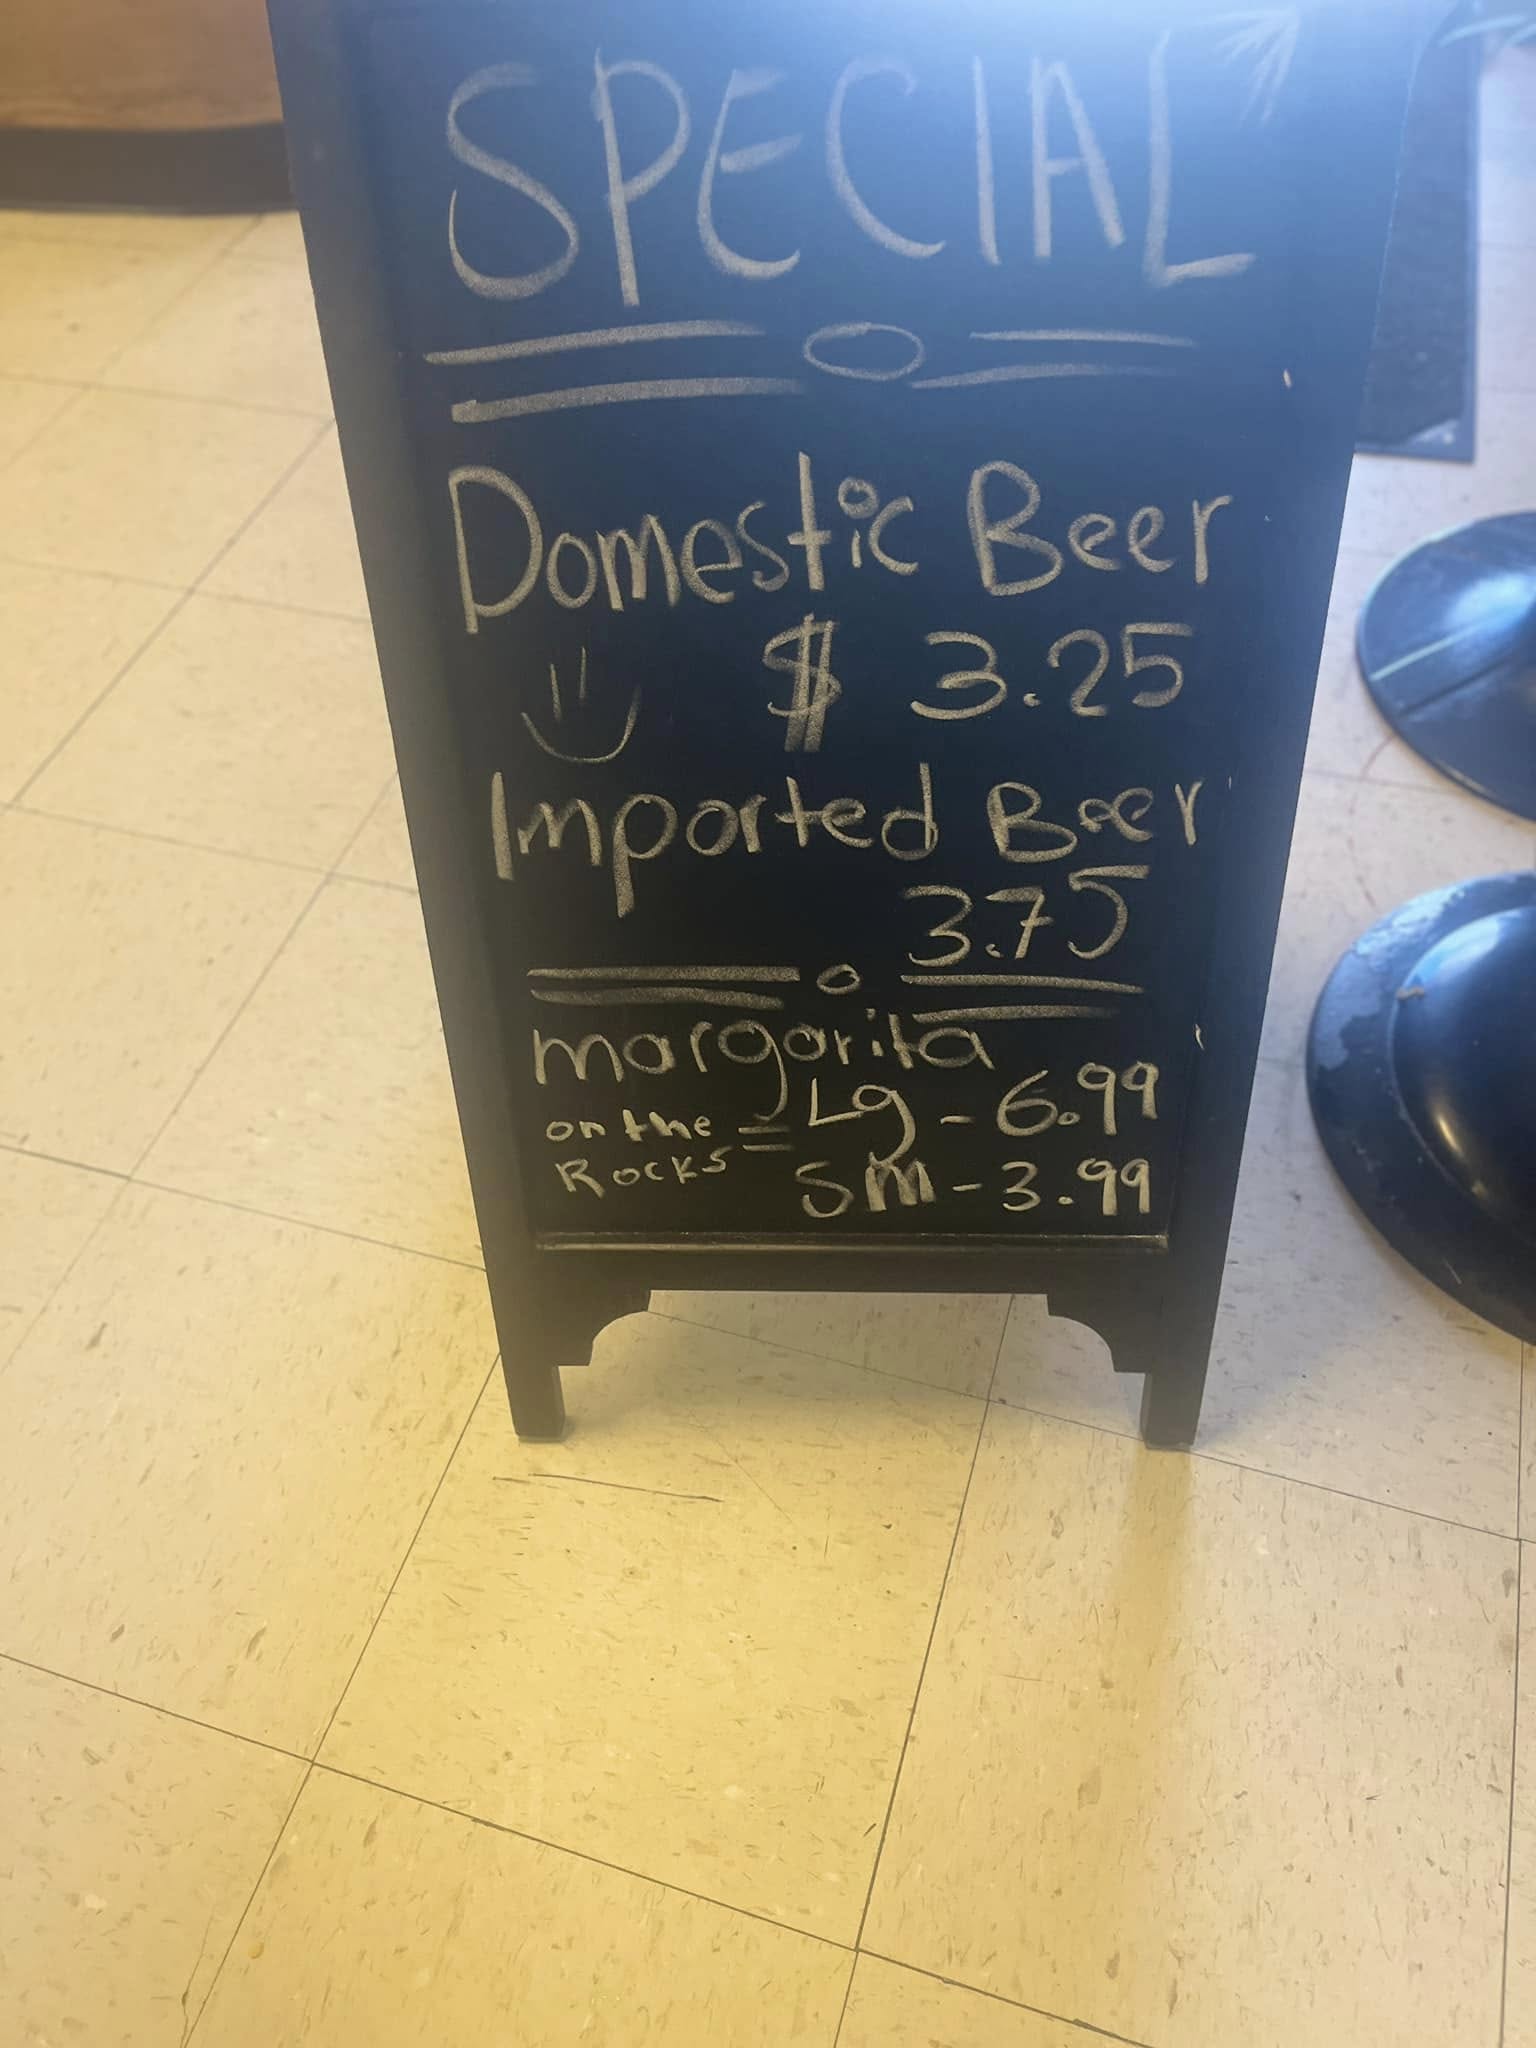 SPECIAL
Domestic Beer
$ 3.25
Imported Beer
3.75
margarita
on the = Lg - 6.99
Rocks SM - 3.99